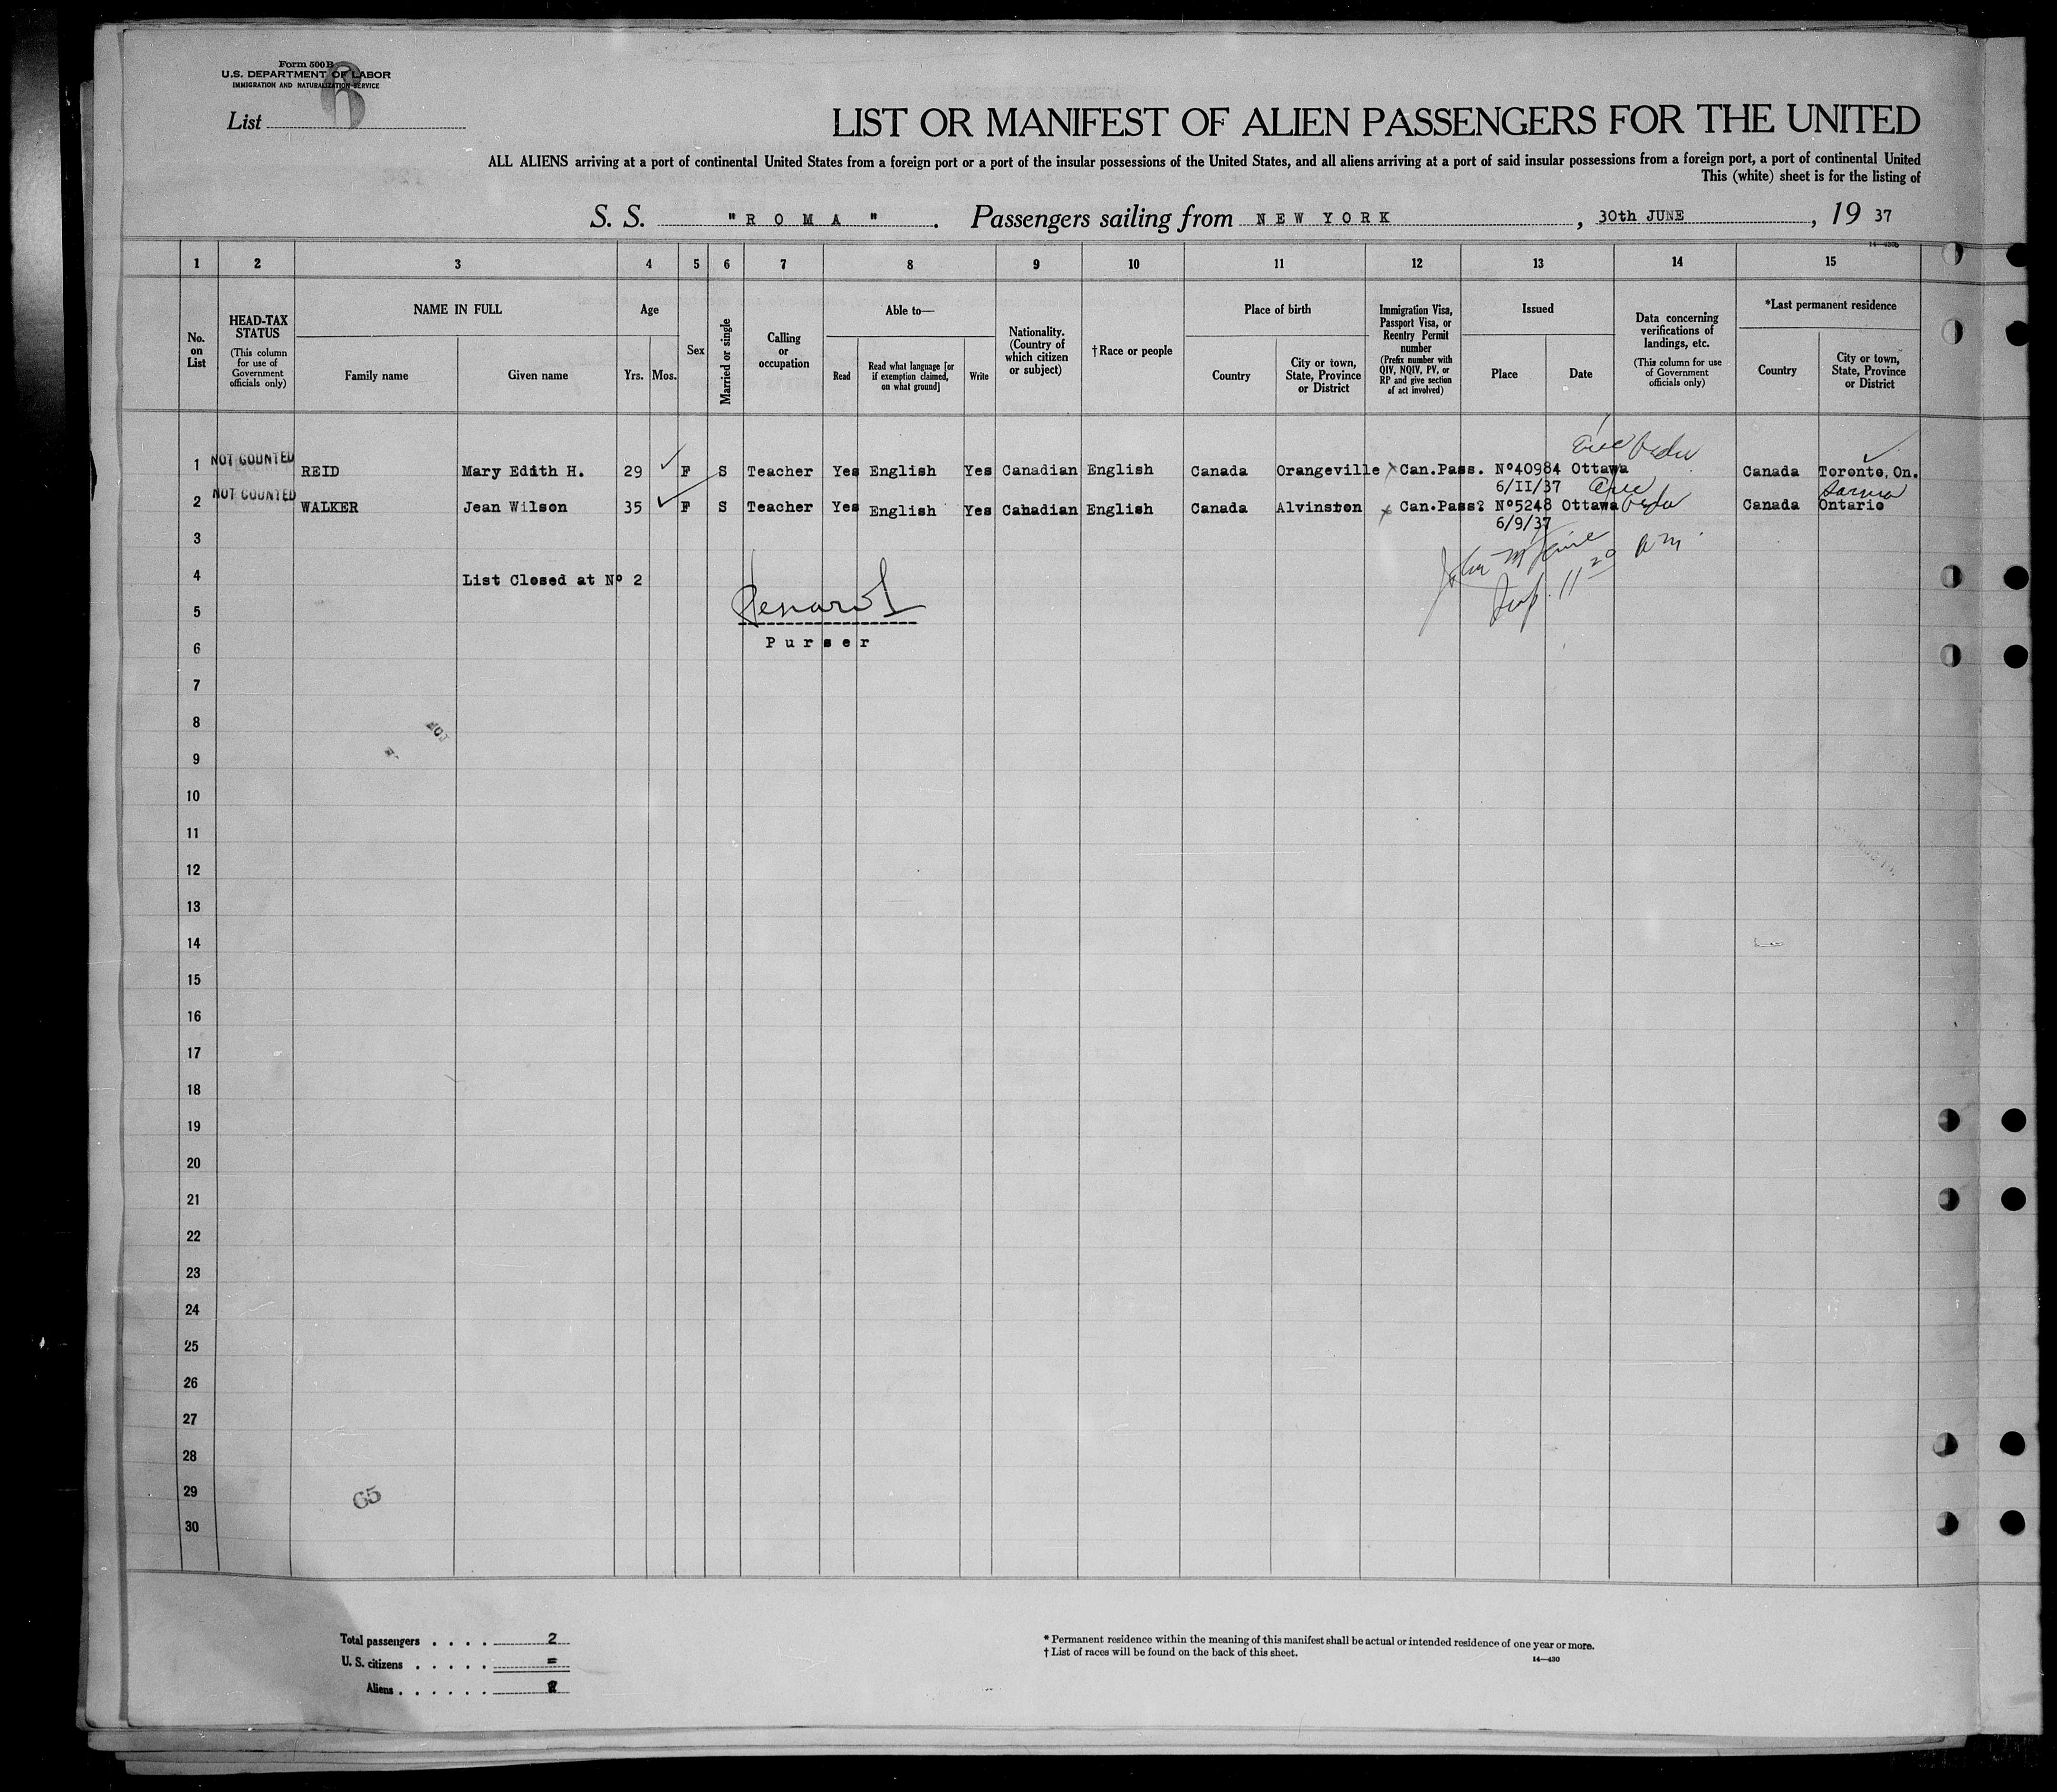 Form 500 B
U.S. DEPARTMENT OF LABOR
IMMIGRATION AND NATURALIZATION SERVICE
6
List
LIST OR MANIFEST OF ALIEN PASSENGERS FOR THE UNITED
ALL ALIENS arriving at a port of continental United States from a foreign port or a port of the insular possessions of the United States, and all aliens arriving at a port of said insular possessions from a foreign port, a port of continental United
This (white) sheet is for the listing of
S. S. "ROMA". Passengers sailing from NEW YORK, 30th JUNE, 19 37
1 2 3 4 5 6 7 8 9 10 11 12 13 14 15
No. on List
HEAD-TAX STATUS (This column for use of Government officials only)
NAME IN FULL
Family name
Given name
Age
Yrs. Mos.
Sex
Married or single
Calling or occupation
Able to—
Read
Read what language [or if exemption claimed, on what ground]
Write
Nationality. (Country of which citizen or subject)
†Race or people
Place of birth
Country
City or town, State, Province or District
Immigration Visa, Passport Visa, or Reentry Permit number (Prefix number with QIV, NQIV, PV, or RP and give section of act involved)
Issued
Place
Date
Data concerning verifications of landings, etc. (This column for use of Government officials only)
*Last permanent residence
Country
City or town, State, Province or District
1 NOT COUNTED REID Mary Edith H. 29 F S Teacher Yes English Yes Canadian English Canada Orangeville Can.Pass. Nº40984 Ottawa Canada Toronto, On.
6/II/37
Sarnia
2 NOT COUNTED WALKER Jean Wilson 35 F S Teacher Yes English Yes Canadian English Canada Alvinston Can.Pass? Nº5248 Ottawa Canada Ontario
6/9/37
3
4 List Closed at Nº 2
5
Purser
6
7
8
9
10
11
12
13
14
15
16
17
18
19
20
21
22
23
24
25
26
27
28
29
65
30
Total passengers . . . . 2
U. S. citizens . . . . . =
Aliens . . . . . . 2
* Permanent residence within the meaning of this manifest shall be actual or intended residence of one year or more.
† List of races will be found on the back of this sheet.
14—430